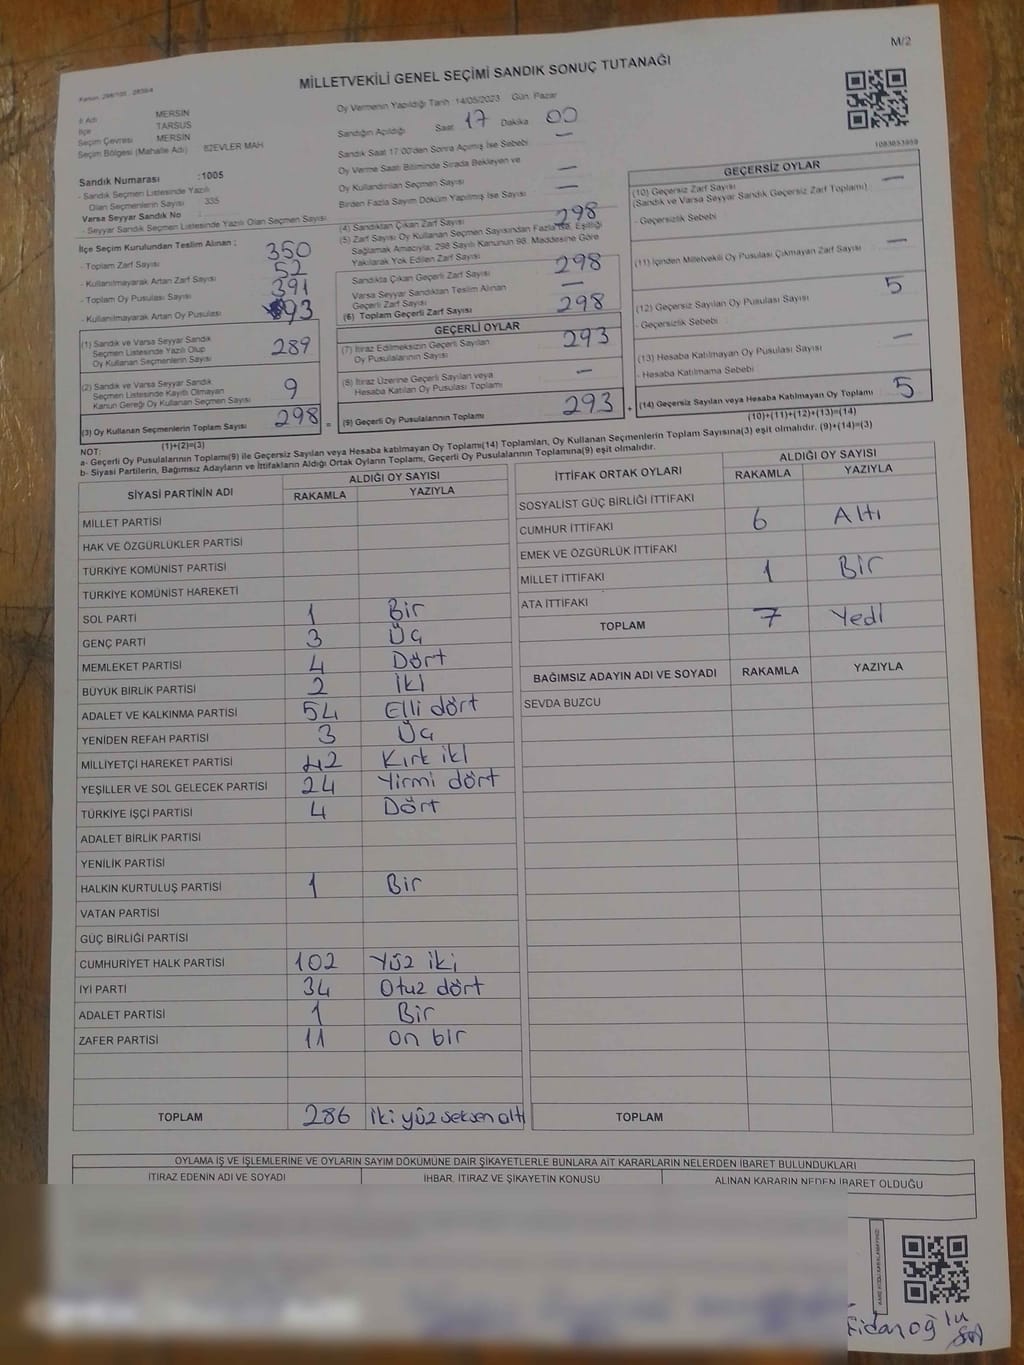 M/2
MİLLETVEKİLİ GENEL SEÇİMİ SANDIK SONUÇ TUTANAĞI
İl Adı MERSİN
İlçe TARSUS
Seçim Çevresi MERSİN
Seçim Bölgesi (Mahalle Adı) 82EVLER MAH
Sandık Numarası :1005
- Sandık Seçmen Listesinde Yazılı
Olan Seçmenlerin Sayısı 335
Varsa Seyyar Sandık No
- Seyyar Sandık Seçmen Listesinde Yazılı Olan Seçmen Sayısı
İlçe Seçim Kurulundan Teslim Alınan ;
- Toplam Zarf Sayısı 350
- Kullanılmayarak Artan Zarf Sayısı 52
- Toplam Oy Pusulası Sayısı 391
- Kullanılmayarak Artan Oy Pusulası 93
(1) Sandık ve Varsa Seyyar Sandık
Seçmen Listesinde Yazılı Olup
Oy Kullanan Seçmenlerin Sayısı 289
(2) Sandık ve Varsa Seyyar Sandık
Seçmen Listesinde Kayıtlı Olmayan
Kanun Gereği Oy Kullanan Seçmen Sayısı 9
(3) Oy Kullanan Seçmenlerin Toplam Sayısı 298
(1)+(2)=(3)
Oy Vermenin Yapıldığı Tarih :14/05/2023 Gün: Pazar
Sandığın Açıldığı Saat 17 Dakika 00
Sandık Saat 17:00'den Sonra Açımış İse Sebebi —
Oy Verme Saati Bitiminde Sırada Bekleyen ve
Oy Kullandırılan Seçmen Sayısı —
Birden Fazla Sayım Döküm Yapılmış İse Sayısı —
(4) Sandıktan Çıkan Zarf Sayısı 298
(5) Zarf Sayısı Oy Kullanan Seçmen Sayısından Fazla ise, Eşitliği
Sağlamak Amacıyla; 298 Sayılı Kanunun 98. Maddesine Göre
Yakılarak Yok Edilen Zarf Sayısı
Sandıkta Çıkan Geçerli Zarf Sayısı 298
Varsa Seyyar Sandıktan Teslim Alınan
Geçerli Zarf Sayısı —
(6) Toplam Geçerli Zarf Sayısı 298
GEÇERLİ OYLAR
(7) İtiraz Edilmeksizin Geçerli Sayılan
Oy Pusulalarının Sayısı 293
(8) İtiraz Üzerine Geçerli Sayılan veya
Hesaba Katılan Oy Pusulası Toplamı —
(9) Geçerli Oy Pusulalarının Toplamı 293
1083853959
GEÇERSİZ OYLAR
(10) Geçersiz Zarf Sayısı —
(Sandık ve Varsa Seyyar Sandık Geçersiz Zarf Toplamı)
- Geçersizlik Sebebi
(11) İçinden Milletvekili Oy Pusulası Çıkmayan Zarf Sayısı —
(12) Geçersiz Sayılan Oy Pusulası Sayısı 5
- Geçersizlik Sebebi
(13) Hesaba Katılmayan Oy Pusulası Sayısı —
- Hesaba Katılmama Sebebi
(14) Geçersiz Sayılan veya Hesaba Katılmayan Oy Toplamı 5
(10)+(11)+(12)+(13)=(14)
NOT:
a- Geçerli Oy Pusulalarının Toplamı(9) ile Geçersiz Sayılan veya Hesaba katılmayan Oy Toplamı(14) Toplamları, Oy Kullanan Seçmenlerin Toplam Sayısına(3) eşit olmalıdır. (9)+(14)=(3)
b- Siyasi Partilerin, Bağımsız Adayların ve İttifakların Aldığı Ortak Oyların Toplamı, Geçerli Oy Pusulalarının Toplamına(9) eşit olmalıdır.
SİYASİ PARTİNİN ADI ALDIĞI OY SAYISI
RAKAMLA YAZIYLA
MİLLET PARTİSİ
HAK VE ÖZGÜRLÜKLER PARTİSİ
TÜRKİYE KOMÜNİST PARTİSİ
TÜRKİYE KOMÜNİST HAREKETİ
SOL PARTİ 1 Bir
GENÇ PARTİ 3 Üç
MEMLEKET PARTİSİ 4 Dört
BÜYÜK BİRLİK PARTİSİ 2 İki
ADALET VE KALKINMA PARTİSİ 54 Elli dört
YENİDEN REFAH PARTİSİ 3 Üç
MİLLİYETÇİ HAREKET PARTİSİ 42 Kırk iki
YEŞİLLER VE SOL GELECEK PARTİSİ 24 Yirmi dört
TÜRKİYE İŞÇİ PARTİSİ 4 Dört
ADALET BİRLİK PARTİSİ
YENİLİK PARTİSİ
HALKIN KURTULUŞ PARTİSİ 1 Bir
VATAN PARTİSİ
GÜÇ BİRLİĞİ PARTİSİ
CUMHURİYET HALK PARTİSİ 102 Yüz iki
İYİ PARTİ 34 Otuz dört
ADALET PARTİSİ 1 Bir
ZAFER PARTİSİ 11 On bir
TOPLAM 286 iki yüz seksen altı
İTTİFAK ORTAK OYLARI ALDIĞI OY SAYISI
RAKAMLA YAZIYLA
SOSYALİST GÜÇ BİRLİĞİ İTTİFAKI
CUMHUR İTTİFAKI 6 Altı
EMEK VE ÖZGÜRLÜK İTTİFAKI
MİLLET İTTİFAKI 1 Bir
ATA İTTİFAKI
TOPLAM 7 Yedi
BAĞIMSIZ ADAYIN ADI VE SOYADI RAKAMLA YAZIYLA
SEVDA BUZCU
TOPLAM
OYLAMA İŞ VE İŞLEMLERİNE VE OYLARIN SAYIM DÖKÜMÜNE DAİR ŞİKAYETLERLE BUNLARA AİT KARARLARIN NELERDEN İBARET BULUNDUKLARI
İTİRAZ EDENİN ADI VE SOYADI İHBAR, İTİRAZ VE ŞİKAYETİN KONUSU ALINAN KARARIN NEDEN İBARET OLDUĞU